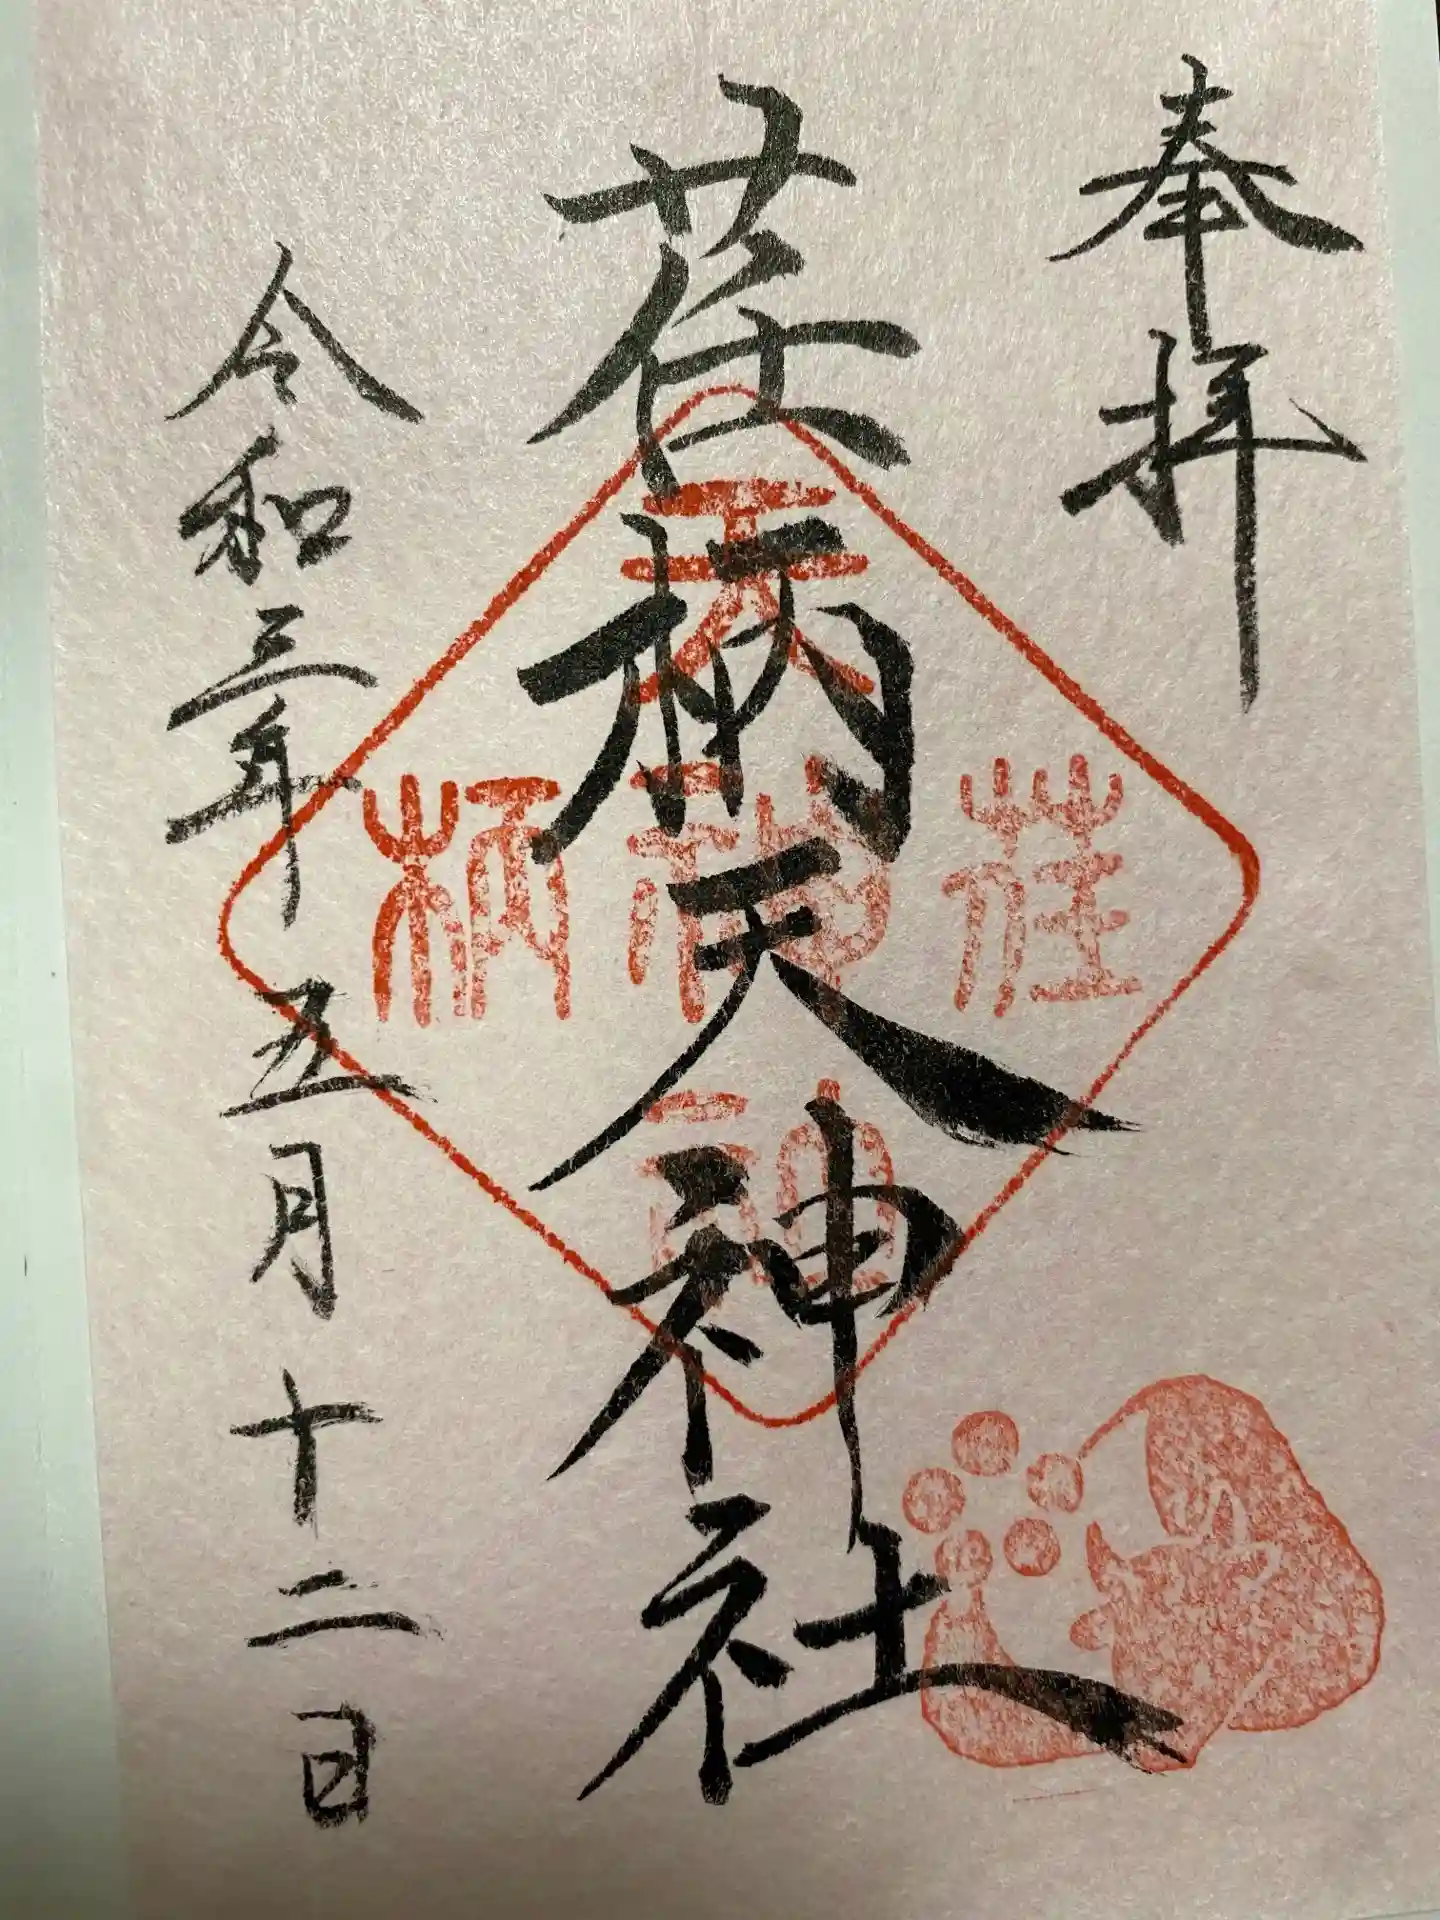 奉拝
荏柄天神社
令和三年五月十二日
天
荏
神
柄